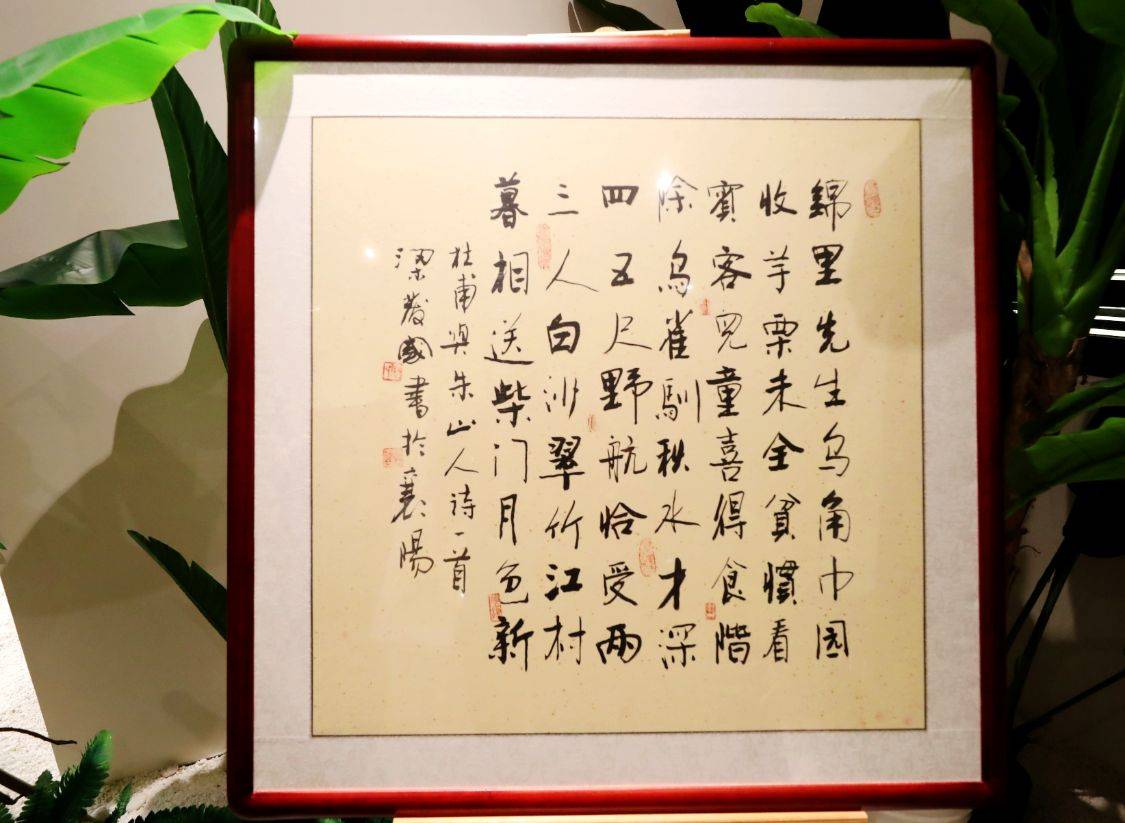 錦里先生乌角巾园
收芋栗未全貧惯看
賓客兒童喜得食階
除鸟雀馴秋水才深
四五尺野航恰受两
三人白沙翠竹江村
暮相送柴门月色新
杜甫與朱山人诗一首
梁發國書於襄陽